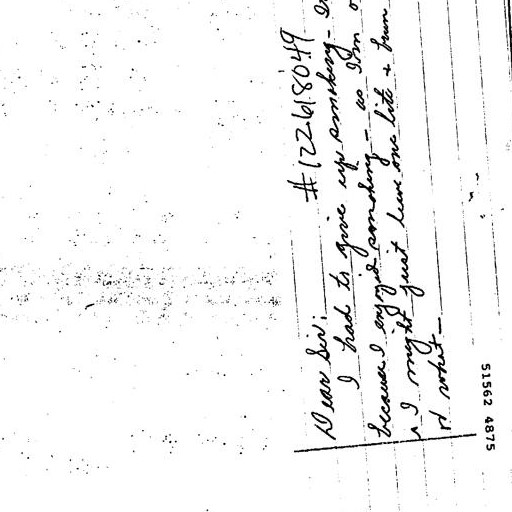 #122618049
Dear Sir:
I had to give up smoking -
because I enjoyed smoking - as I'm
I might just have one lite &
what -
51562 4875